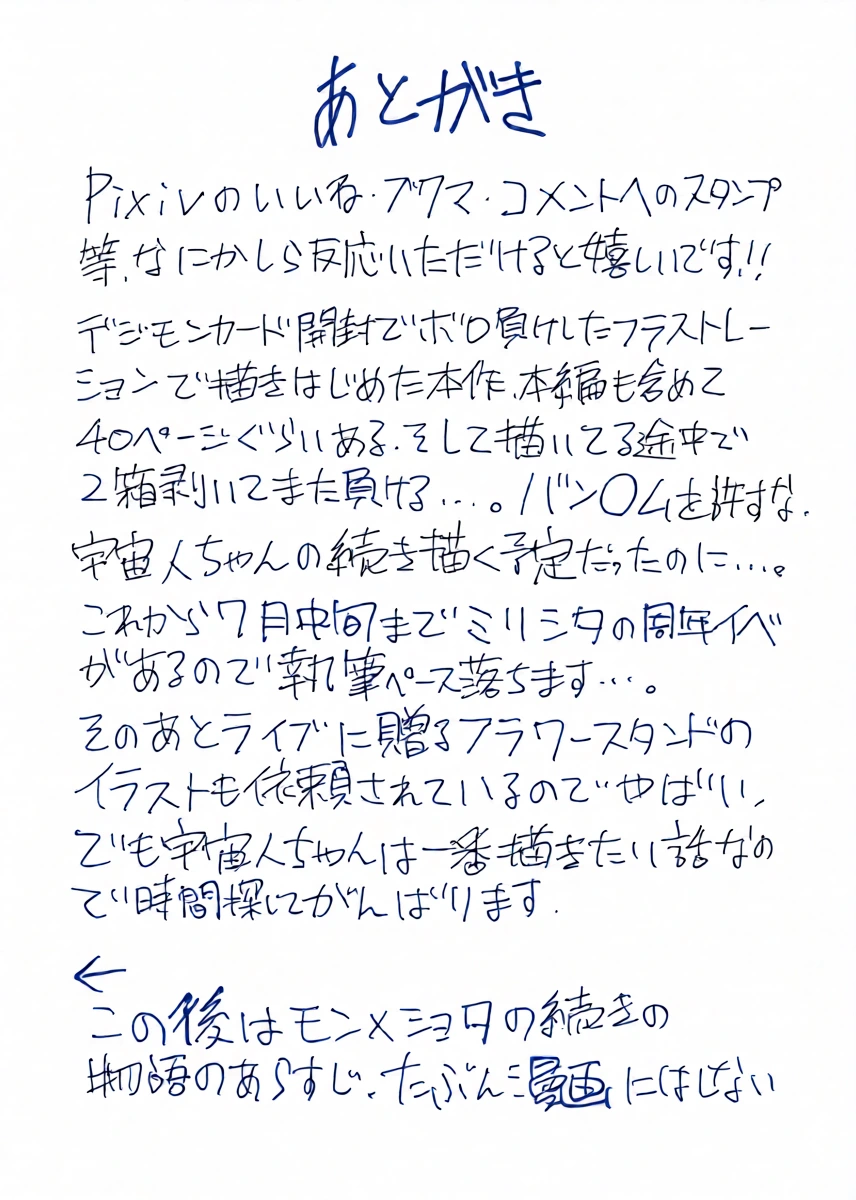 あとがき
Pixivのいいね・ブクマ・コメントへのスタンプ
等、なにかしら反応いただけると嬉しいです!!
デジモンカード開封でボロ負けしたフラストレー
ションで描きはじめた本作、本編も含めて
40ページぐらいある。そして描いてる途中で
2箱剥いてまた負ける…。バン〇ムを許すな。
宇宙人ちゃんの続き描く予定だったのに…。
これから7月中旬までミリシタの周年イベ
があるので執筆ペース落ちます…。
そのあとライブに贈るフラワースタンドの
イラストも依頼されているのでやばい、
でも宇宙人ちゃんは一番描きたい話なの
で時間探してがんばります。
←
この後はモン×ショタの続きの
物語のあらすじ、たぶん漫画にはしない